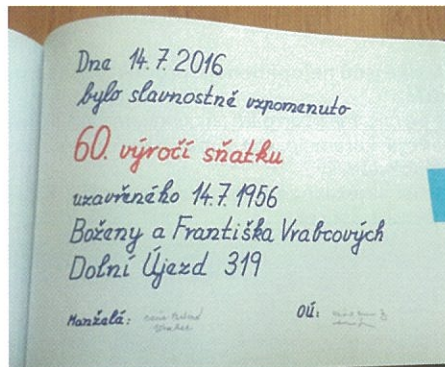 Dne 14.7.2016
bylo slavnostně vzpomenuto
60. výročí sňatku
uzavřeného 14.7.1956
Boženy a Františka Vrabcových
Dolní Újezd 319
Manželé: OÚ: